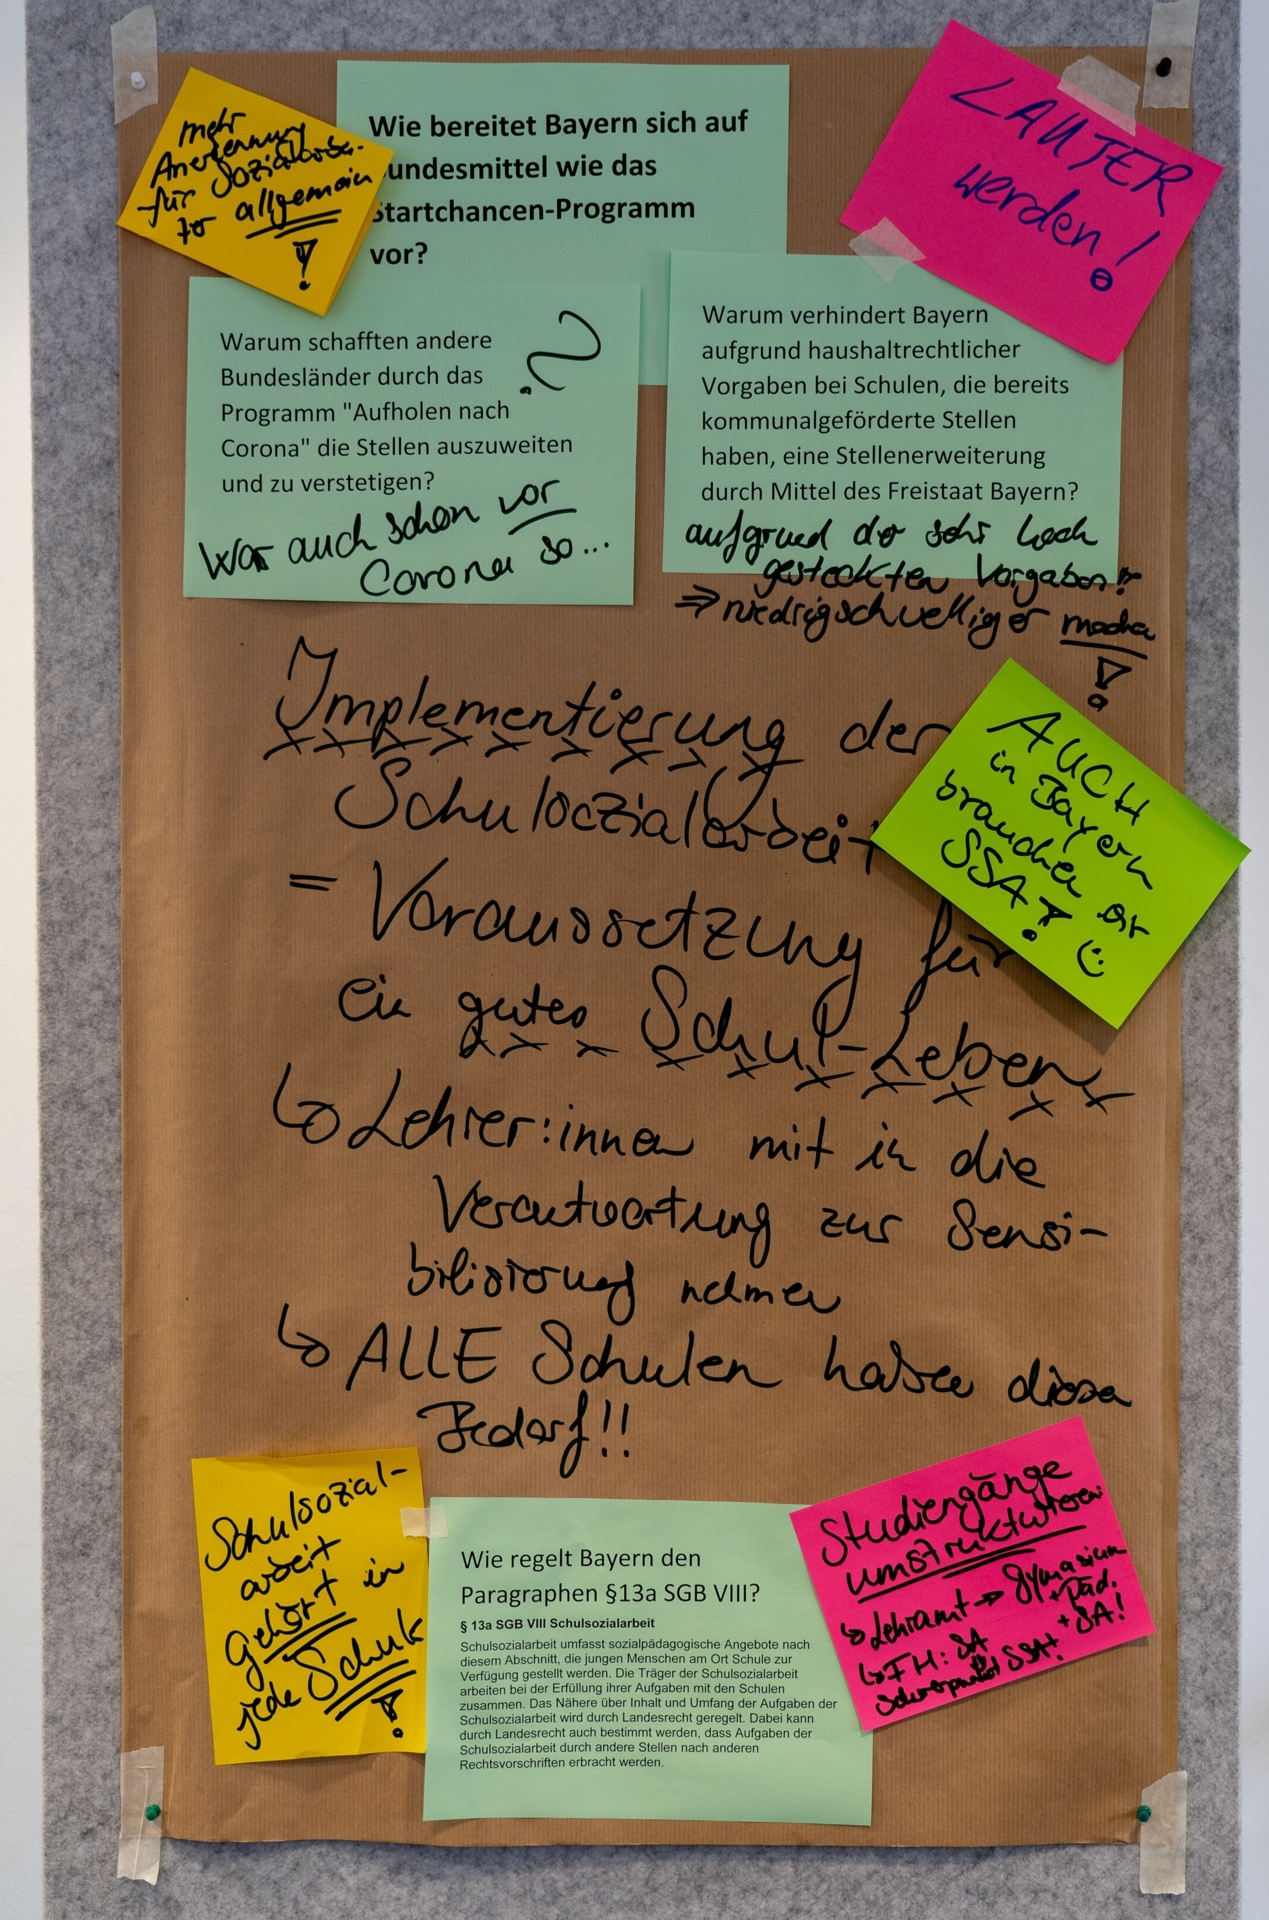 mehr
Anerkennung
für Sozialarbei-
ter allgemein
!
Wie bereitet Bayern sich auf
undesmittel wie das
Startchancen-Programm
vor?
LAUTER
werden!
Warum schafften andere
Bundesländer durch das
Programm "Aufholen nach
Corona" die Stellen auszuweiten
und zu verstetigen?
?
War auch schon vor
Corona so...
Warum verhindert Bayern
aufgrund haushaltrechtlicher
Vorgaben bei Schulen, die bereits
kommunalgeförderte Stellen
haben, eine Stellenerweiterung
durch Mittel des Freistaat Bayern?
aufgrund der sehr hoch
gesteckten Vorgaben!!
⇒ niedrigschwelliger machen
!
Implementierung der
Schulsozialarbeit
= Voraussetzung für
ein gutes Schul-Leben
AUCH
in Bayern
brauchen wir
SSA!
☺
↳ Lehrer:innen mit in die
Verantwortung zur Sensi-
bilisierung nehmen
↳ ALLE Schulen haben diesen
Bedarf!!
Schulsozial-
arbeit
gehört in
jede Schule
!
Wie regelt Bayern den
Paragraphen §13a SGB VIII?
§ 13a SGB VIII Schulsozialarbeit
Schulsozialarbeit umfasst sozialpädagogische Angebote nach
diesem Abschnitt, die jungen Menschen am Ort Schule zur
Verfügung gestellt werden. Die Träger der Schulsozialarbeit
arbeiten bei der Erfüllung ihrer Aufgaben mit den Schulen
zusammen. Das Nähere über Inhalt und Umfang der Aufgaben der
Schulsozialarbeit wird durch Landesrecht geregelt. Dabei kann
durch Landesrecht auch bestimmt werden, dass Aufgaben der
Schulsozialarbeit durch andere Stellen nach anderen
Rechtsvorschriften erbracht werden.
Studiengänge
umstrukturieren:
↳ Lehramt → Gymnasium
+ Päd.
+ SA!
↳ FH: SA
Schwerpunkt SSA!